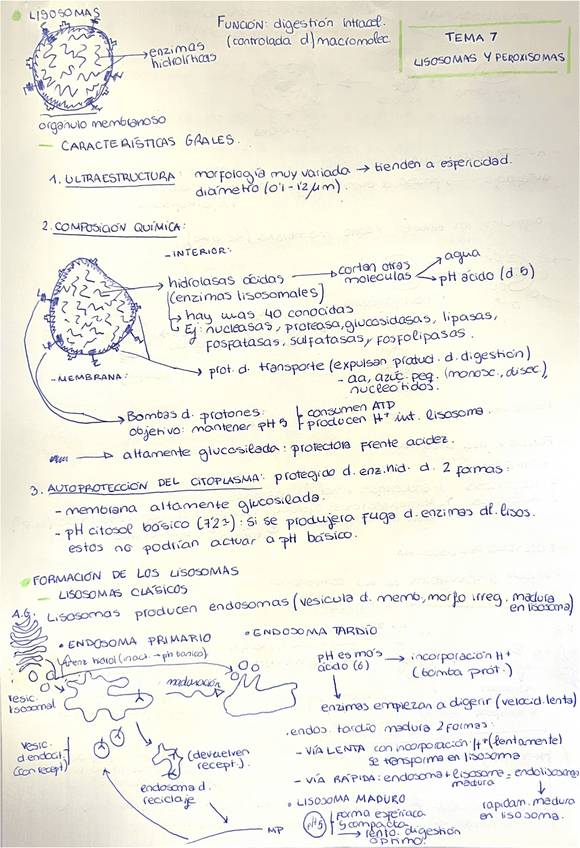 LISOSOMAS
FUNCIÓN: digestión intracel.
(controlada d) macromolec.
TEMA 7
LISOSOMAS Y PEROXISOMAS
enzimas
hidrolíticas
orgánulo membranoso
— CARACTERÍSTICAS GRALES.
1. ULTRAESTRUCTURA: morfología muy variada → tienden a esfericidad.
diámetro (0'1-1'2 μm).
2. COMPOSICIÓN QUÍMICA:
- INTERIOR:
hidrolasas ácidas → cortan otras moleculas
agua
pH ácido (d. 5)
(enzimas lisosomales)
hay unas 40 conocidas
Ej: nucleasas, proteasa, glucosidasas, lipasas,
fosfatasas, sulfatasas, y fosfolipasas.
- MEMBRANA:
prot. d. transporte (expulsan product. d. digestión)
- aa, azúc. peq. (monosc., disac),
nucleótidos.
Bombas d. protones:
objetivo: mantener pH 5
consumen ATP
producen H⁺ int. lisosoma.
altamente glucosilada: protectora frente acidez.
3. AUTOPROTECCIÓN DEL CITOPLASMA: protegido d. enz. hid. d. 2 formas:
- membrana altamente glucosilada.
- pH citosol básico (7'2±): si se produjera fuga d. enzimas dl. lisos.
estos no podrían actuar a pH básico.
FORMACIÓN DE LOS LISOSOMAS
— LISOSOMAS CLÁSICOS
A.G.
Lisosomas producen endosomas (vesícula d. memb, morfo irreg. madura
en lisosoma)
• ENDOSOMA PRIMARIO
• ENDOSOMA TARDÍO
enz hidrol (inact. → ph básico)
vesic.
lisosomal
maduración
pH es más
ácido (6) → incorporación H⁺
(bomba prot.)
enzimas empiezan a digerir (velocid. lenta)
vesic.
d. endocit
(con recept)
(devuelven
recept.).
endosoma d.
reciclaje
MP
endos. tardío madura 2 formas:
- VÍA LENTA con incorporación H⁺ (lentamente)
se transforma en lisosoma
- VÍA RÁPIDA: endosoma + lisosoma = endolisosoma
madura
rápidam. madura
en lisosoma.
• LISOSOMA MADURO
pH 5
forma esférica
y compacta
rento. digestión
óptimo.